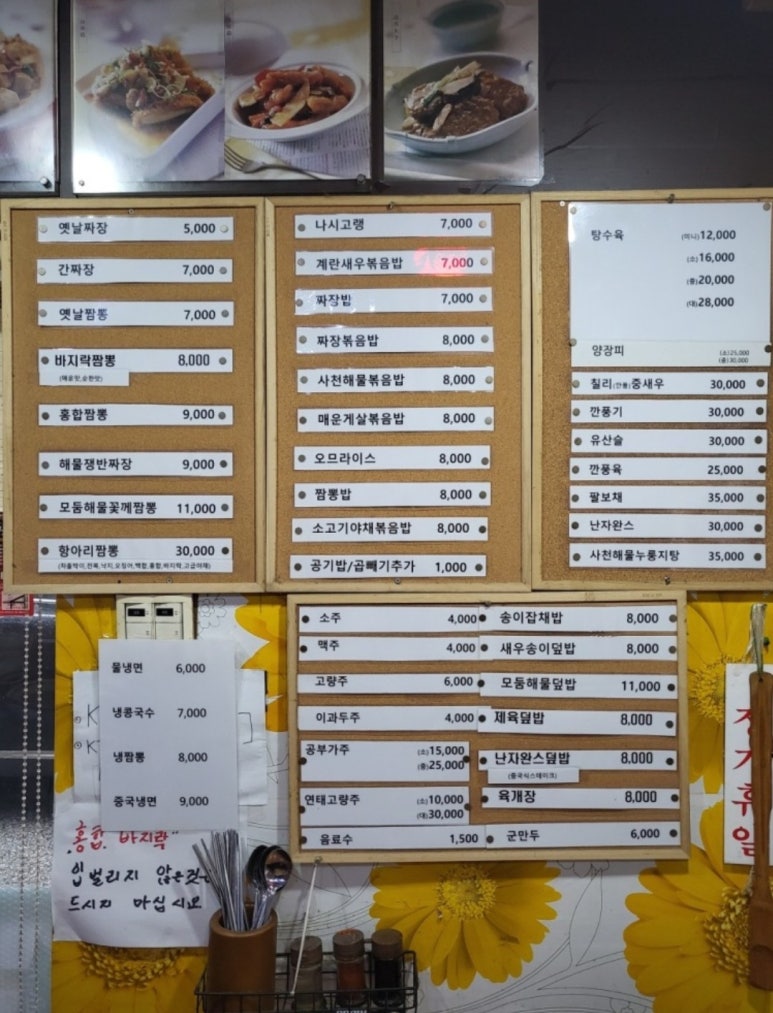 옛날짜장 5,000
간짜장 7,000
옛날짬뽕 7,000
바지락짬뽕 8,000
(매운맛,순한맛)
홍합짬뽕 9,000
해물쟁반짜장 9,000
모둠해물꽃게짬뽕 11,000
항아리짬뽕 30,000
(차돌박이,전복,낙지,오징어,백합,홍합,바지락,고급야채)
나시고랭 7,000
계란새우볶음밥 7,000
짜장밥 7,000
짜장볶음밥 8,000
사천해물볶음밥 8,000
매운게살볶음밥 8,000
오므라이스 8,000
짬뽕밥 8,000
소고기야채볶음밥 8,000
공기밥/곱빼기추가 1,000
탕수육 (미니)12,000
(소)16,000
(중)20,000
(대)28,000
양장피 (소)25,000
(중)30,000
칠리(깐풍)중새우 30,000
깐풍기 30,000
유산슬 30,000
깐풍육 25,000
팔보채 35,000
난자완스 30,000
사천해물누룽지탕 35,000
소주 4,000
맥주 4,000
고량주 6,000
이과두주 4,000
공부가주 (소)15,000
(중)25,000
연태고량주 (소)10,000
(대)30,000
음료수 1,500
송이잡채밥 8,000
새우송이덮밥 8,000
모둠해물덮밥 11,000
제육덮밥 8,000
난자완스덮밥 8,000
(중국식스테이크)
육개장 8,000
군만두 6,000
물냉면 6,000
냉콩국수 7,000
냉짬뽕 8,000
중국냉면 9,000
"홍합, 바지락"
입벌리지 않은것은
드시지 마십시요
정기휴일